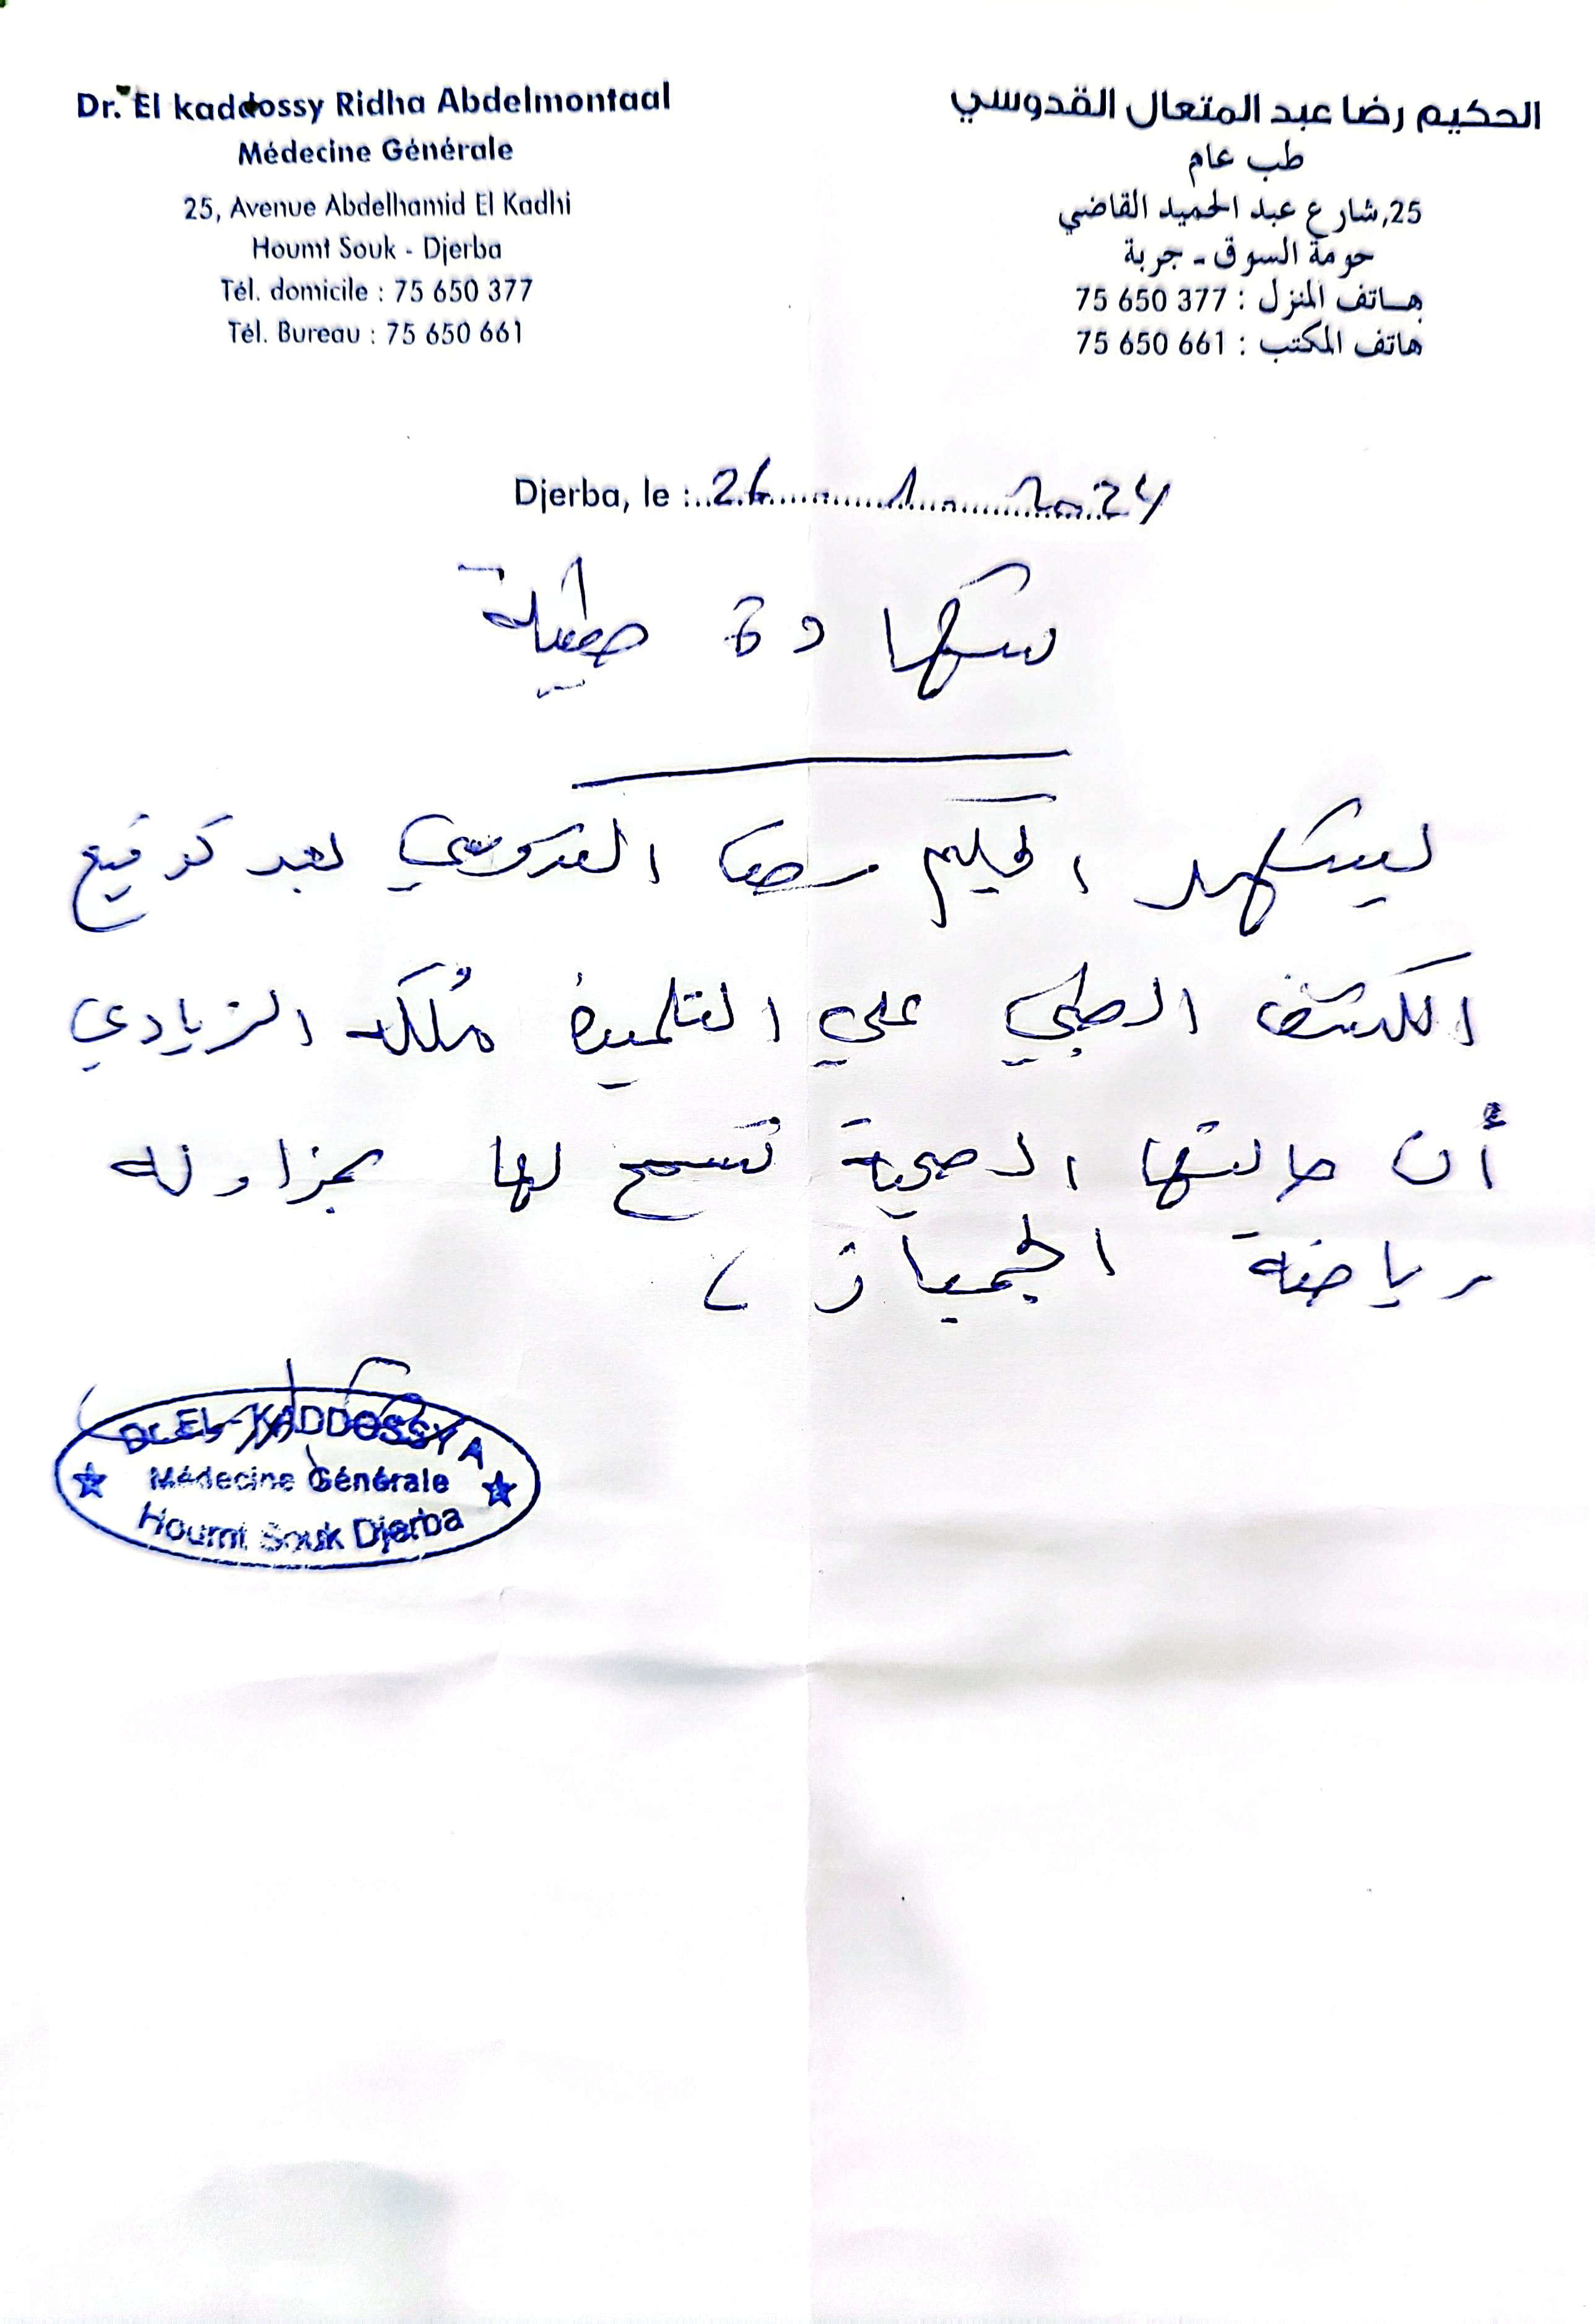 Dr. El kaddossy Ridha Abdelmontaal
Médecine Générale
25, Avenue Abdelhamid El Kadhi
Houmt Souk - Djerba
Tél. domicile : 75 650 377
Tél. Bureau : 75 650 661
الحكيم رضا عبد المتعال القدوسي
طب عام
25, شارع عبد الحميد القاضي
حومة السوق - جربة
هاتف المنزل : 377 650 75
هاتف المكتب : 661 650 75
Djerba, le : 26 1 2024
شهادة طبية
يشهد الحكيم رضا القدوسي بعد توقيع
الكشف الطبي علي التلميذة مُلك الزيادي
أن حالتها الصحية تسمح لها بمزاولة
رياضة الجمباز
Dr EL-KADDOSSY A
Médecine Générale
Houmt Souk Djerba